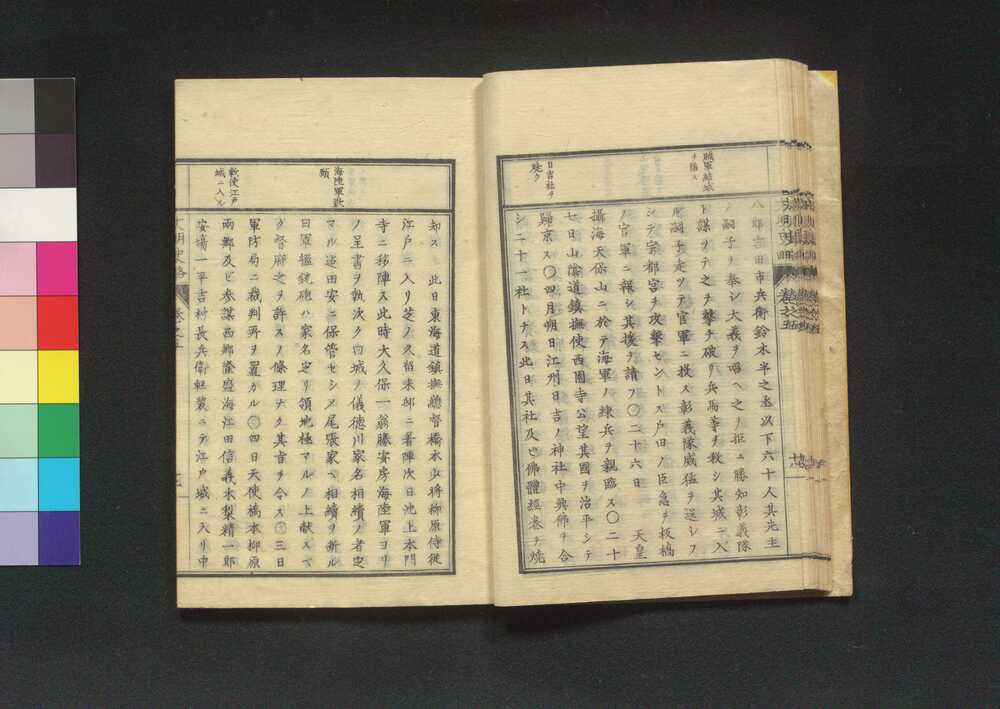 賊軍結城
ヲ陥ス
日吉社ヲ
焼ク
八郎吉田市兵衛鈴木半之丞以下六十人其先主
ノ嗣子ヲ奉シ大義ヲ唱ヘ之ヲ拒ム勝知彰義隊
ト謀リテ之ヲ撃チ破リ兵馬等ヲ殺シ其城ニ入
ル嗣子ハ走ツテ官軍ニ投ス彰義隊威猛ヲ逞シフ
シテ宗都宮ヲ攻撃セントス戸田ノ臣急ヲ板橋
ノ官軍ニ報シ其援ヲ請フ〇二十六日 天皇
攝海天保山ニ於テ海軍ノ練兵ヲ親臨ス〇二十
七日山陰道鎮撫使西園寺公望其國ヲ治平シテ
歸京ス〇四月朔日江州日吉ノ神社中興佛ヲ合
シ二十一社トナス此日其社及ヒ佛體經巻ヲ焼
海陸軍歎
願
敕使江戸
城ニ入ル
知ス 此日東海道鎮撫總督橋本少将柳原侍従
江戸ニ入リ芝ノ久留米邸ニ着陣次日池上本門
寺ニ移陣ス此時大久保一翁勝安房海陸軍ヨリ
ノ呈書ヲ執次ク曰城ノ儀徳川家名相續ノ者定
マル迄田安ニ保管セシメ尾張家ヘ相續ヲ新ル
曰軍艦銃砲ハ家名定リ領地極マルノ上献スヘ
ク督府之ヲ許スノ條理ナク其旨ヲ令ス〇三日
軍防局ニ裁判所ヲ置カル〇四日天使橋本柳原
両卿及ヒ参謀西郷隆盛海江田信義木梨精一郎
安場一平吉村長兵衛軽装ニテ江戸城ニ入リ中